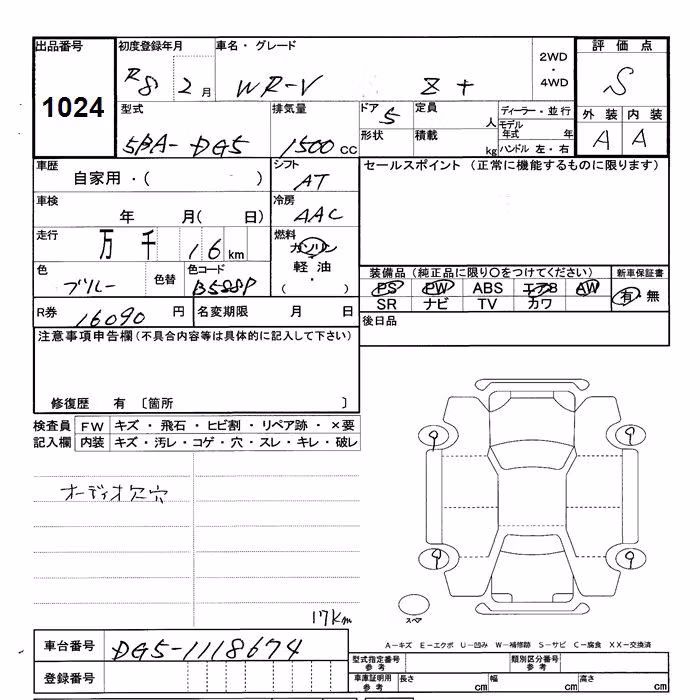 出品番号 初度登録年月 車名・グレード 2WD・4WD 評価点
1024 R8 2月 WR-V Z+ S
型式 排気量 ドア 5 定員 人 ディーラー・並行 外装 内装
5BA-DG5 1500cc 形状 積載 kg モデル年式 年 A A
ハンドル 左・右
車歴 自家用・( ) シフト AT セールスポイント (正常に機能するものに限ります)
車検 年 月( 日) 冷房 AAC
走行 万 千 16 km 燃料 ガソリン
軽油
( ・ )
色 ブルー 色替 色コード B588P 装備品 (純正品に限り○をつけてください) 新車保証書
PS PW ABS エアB AW 有・無
SR ナビ TV カワ
R券 16090円 名変期限 月 日 後日品
注意事項申告欄(不具合内容等は具体的に記入して下さい)
修復歴 有 〔箇所 〕
検査員 FW キズ・飛石・ヒビ割・リペア跡・×要
記入欄 内装 キズ・汚レ・コゲ・穴・スレ・キレ・破レ
9 9
オーディオ欠穴
9 9
17km スペア
A−キズ E−エクボ U−凹み W−補修跡 S−サビ C−腐食 XX−交換済
車台番号 DG5-1118674 型式指定番号 参考 類別区分番号 参考
登録番号 車庫証明用 参考 長さ cm 幅 cm 高さ cm